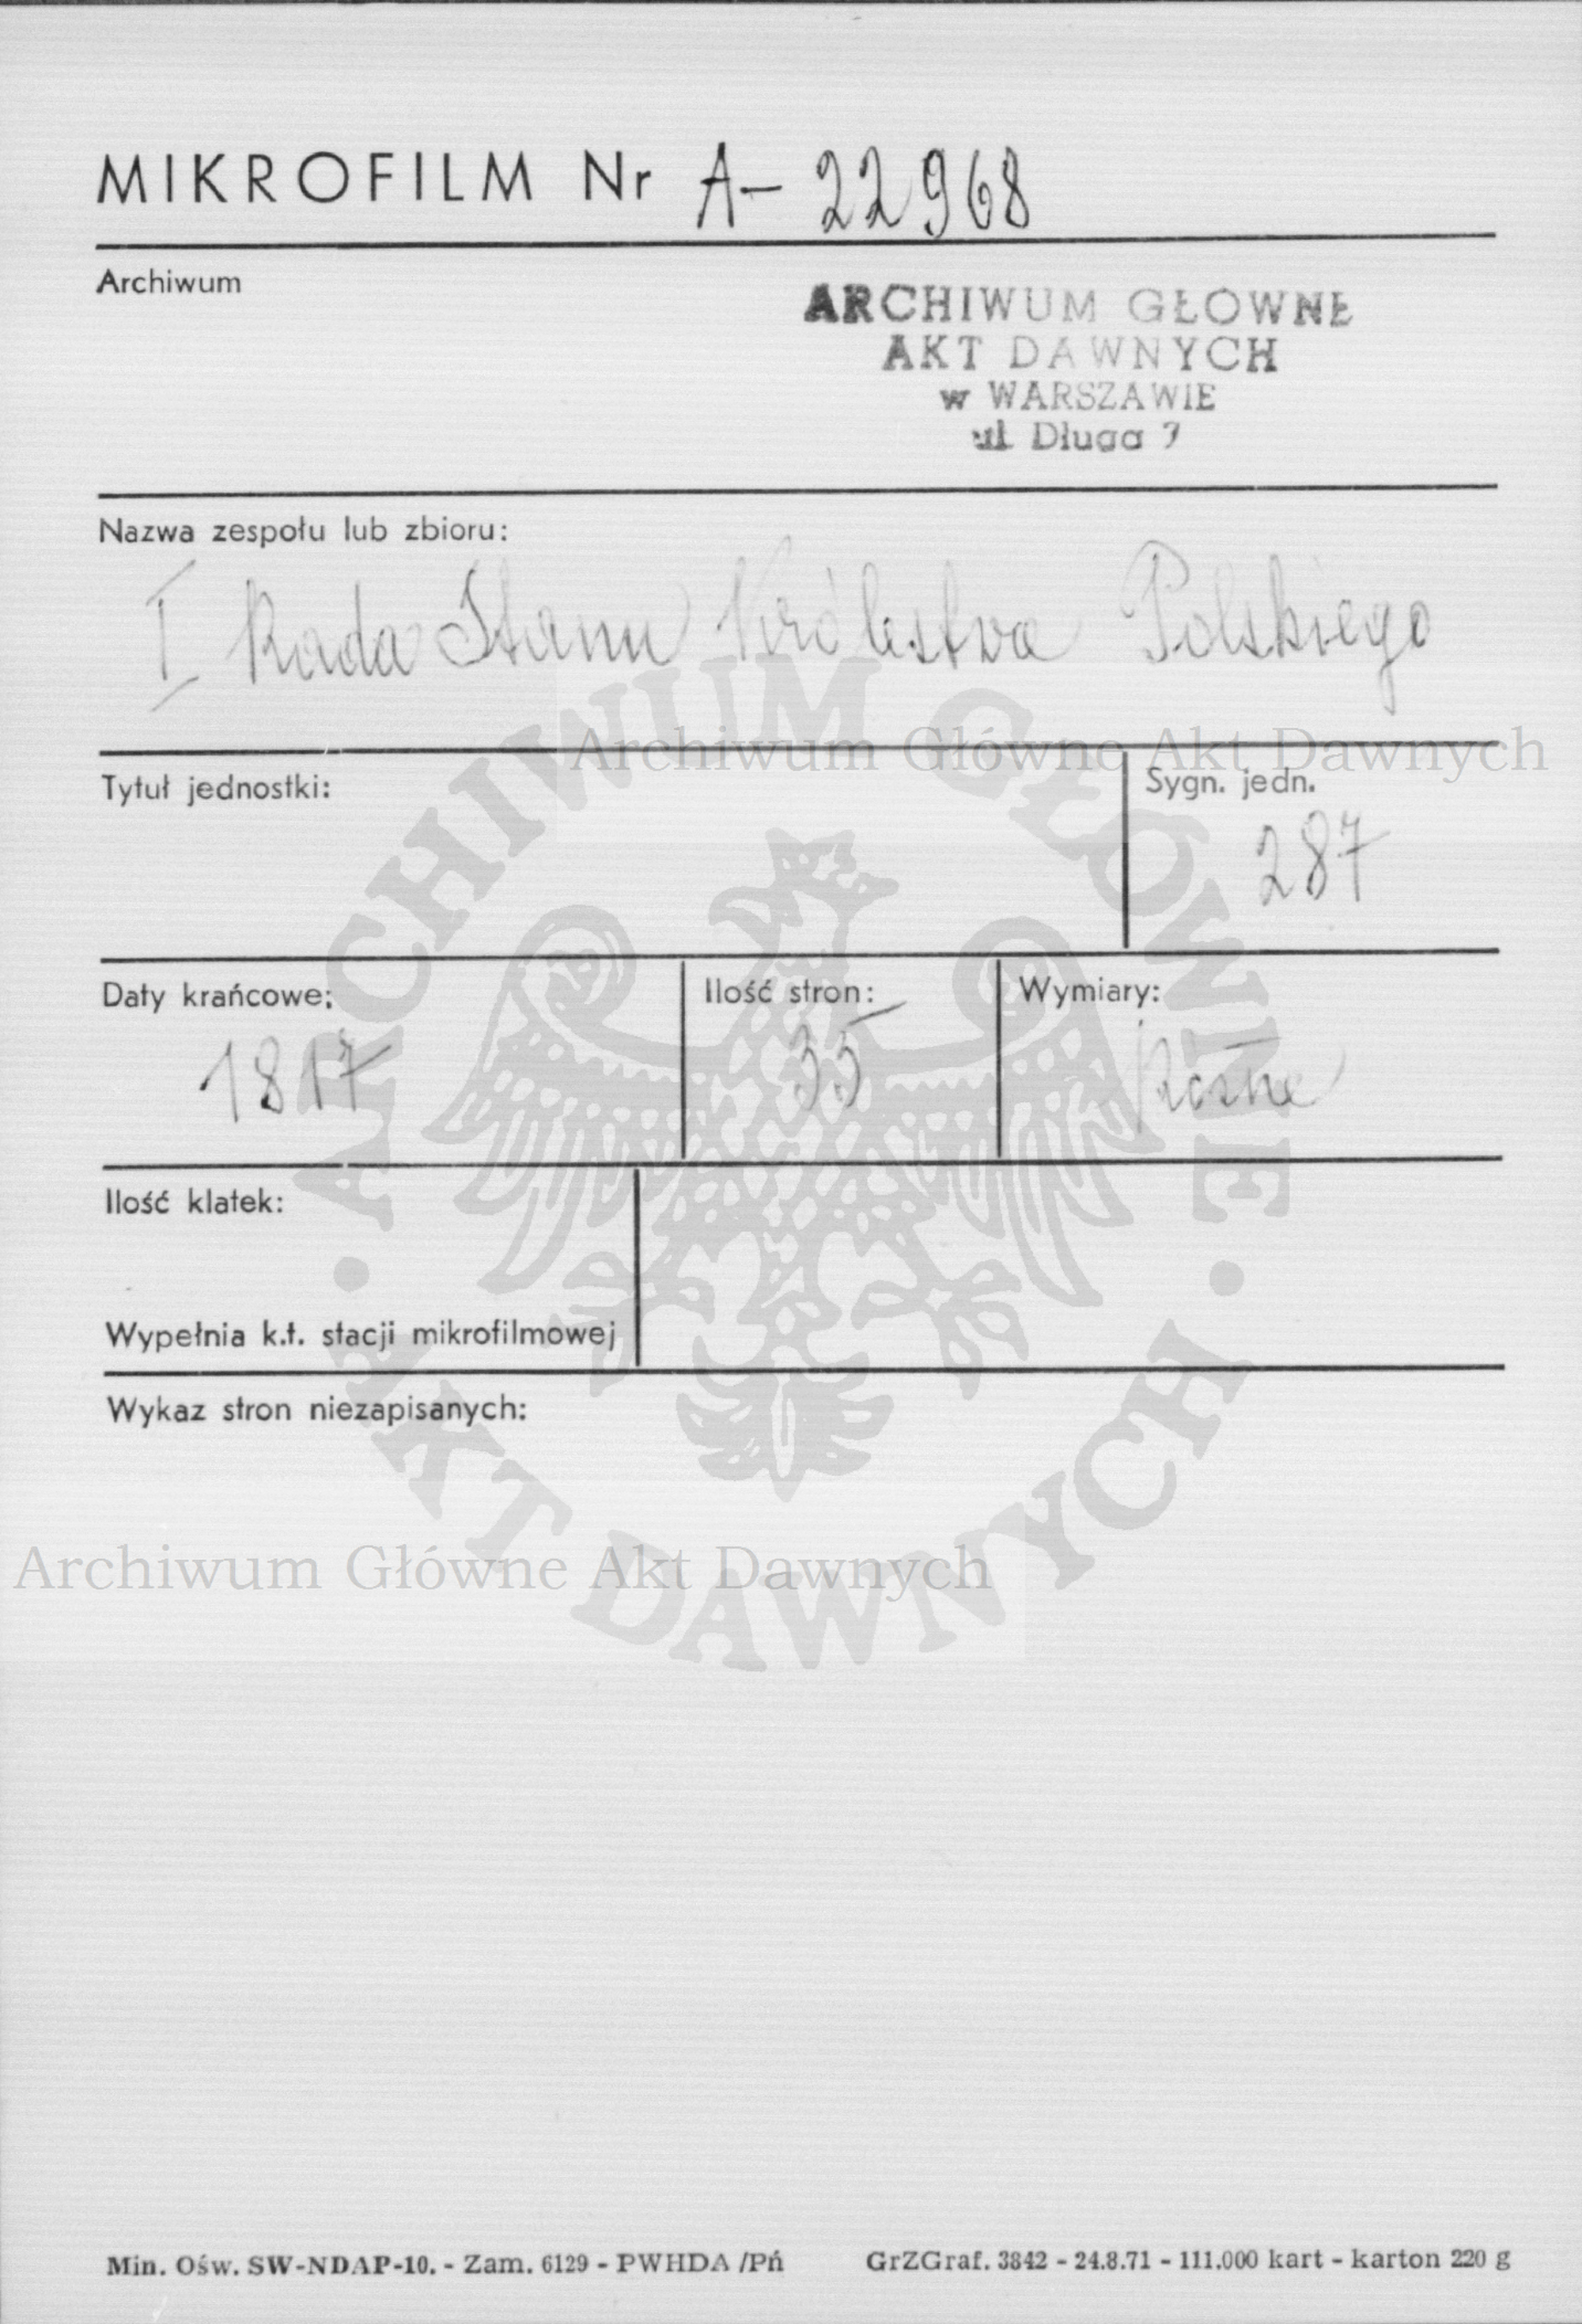 MIKROFILM Nr A-22968
Archiwum
ARCHIWUM GŁÓWNE
AKT DAWNYCH
w WARSZAWIE
ul. Długa 7
Nazwa zespołu lub zbioru:
I Rada Stanu Królestwa Polskiego
Archiwum Główne Akt Dawnych
Tytuł jednostki:
Sygn. jedn.
287
Daty krańcowe:
1817
Ilość stron:
35
Wymiary:
Różne
Ilość klatek:
Wypełnia k.t. stacji mikrofilmowej
Wykaz stron niezapisanych:
Archiwum Główne Akt Dawnych
ARCHIWUM GŁÓWNE
AKT DAWNYCH
Min. Ośw. SW-NDAP-10. - Zam. 6129 - PWHDA /Pń
GrZGraf. 3842 - 24.8.71 - 111.000 kart - karton 220 g